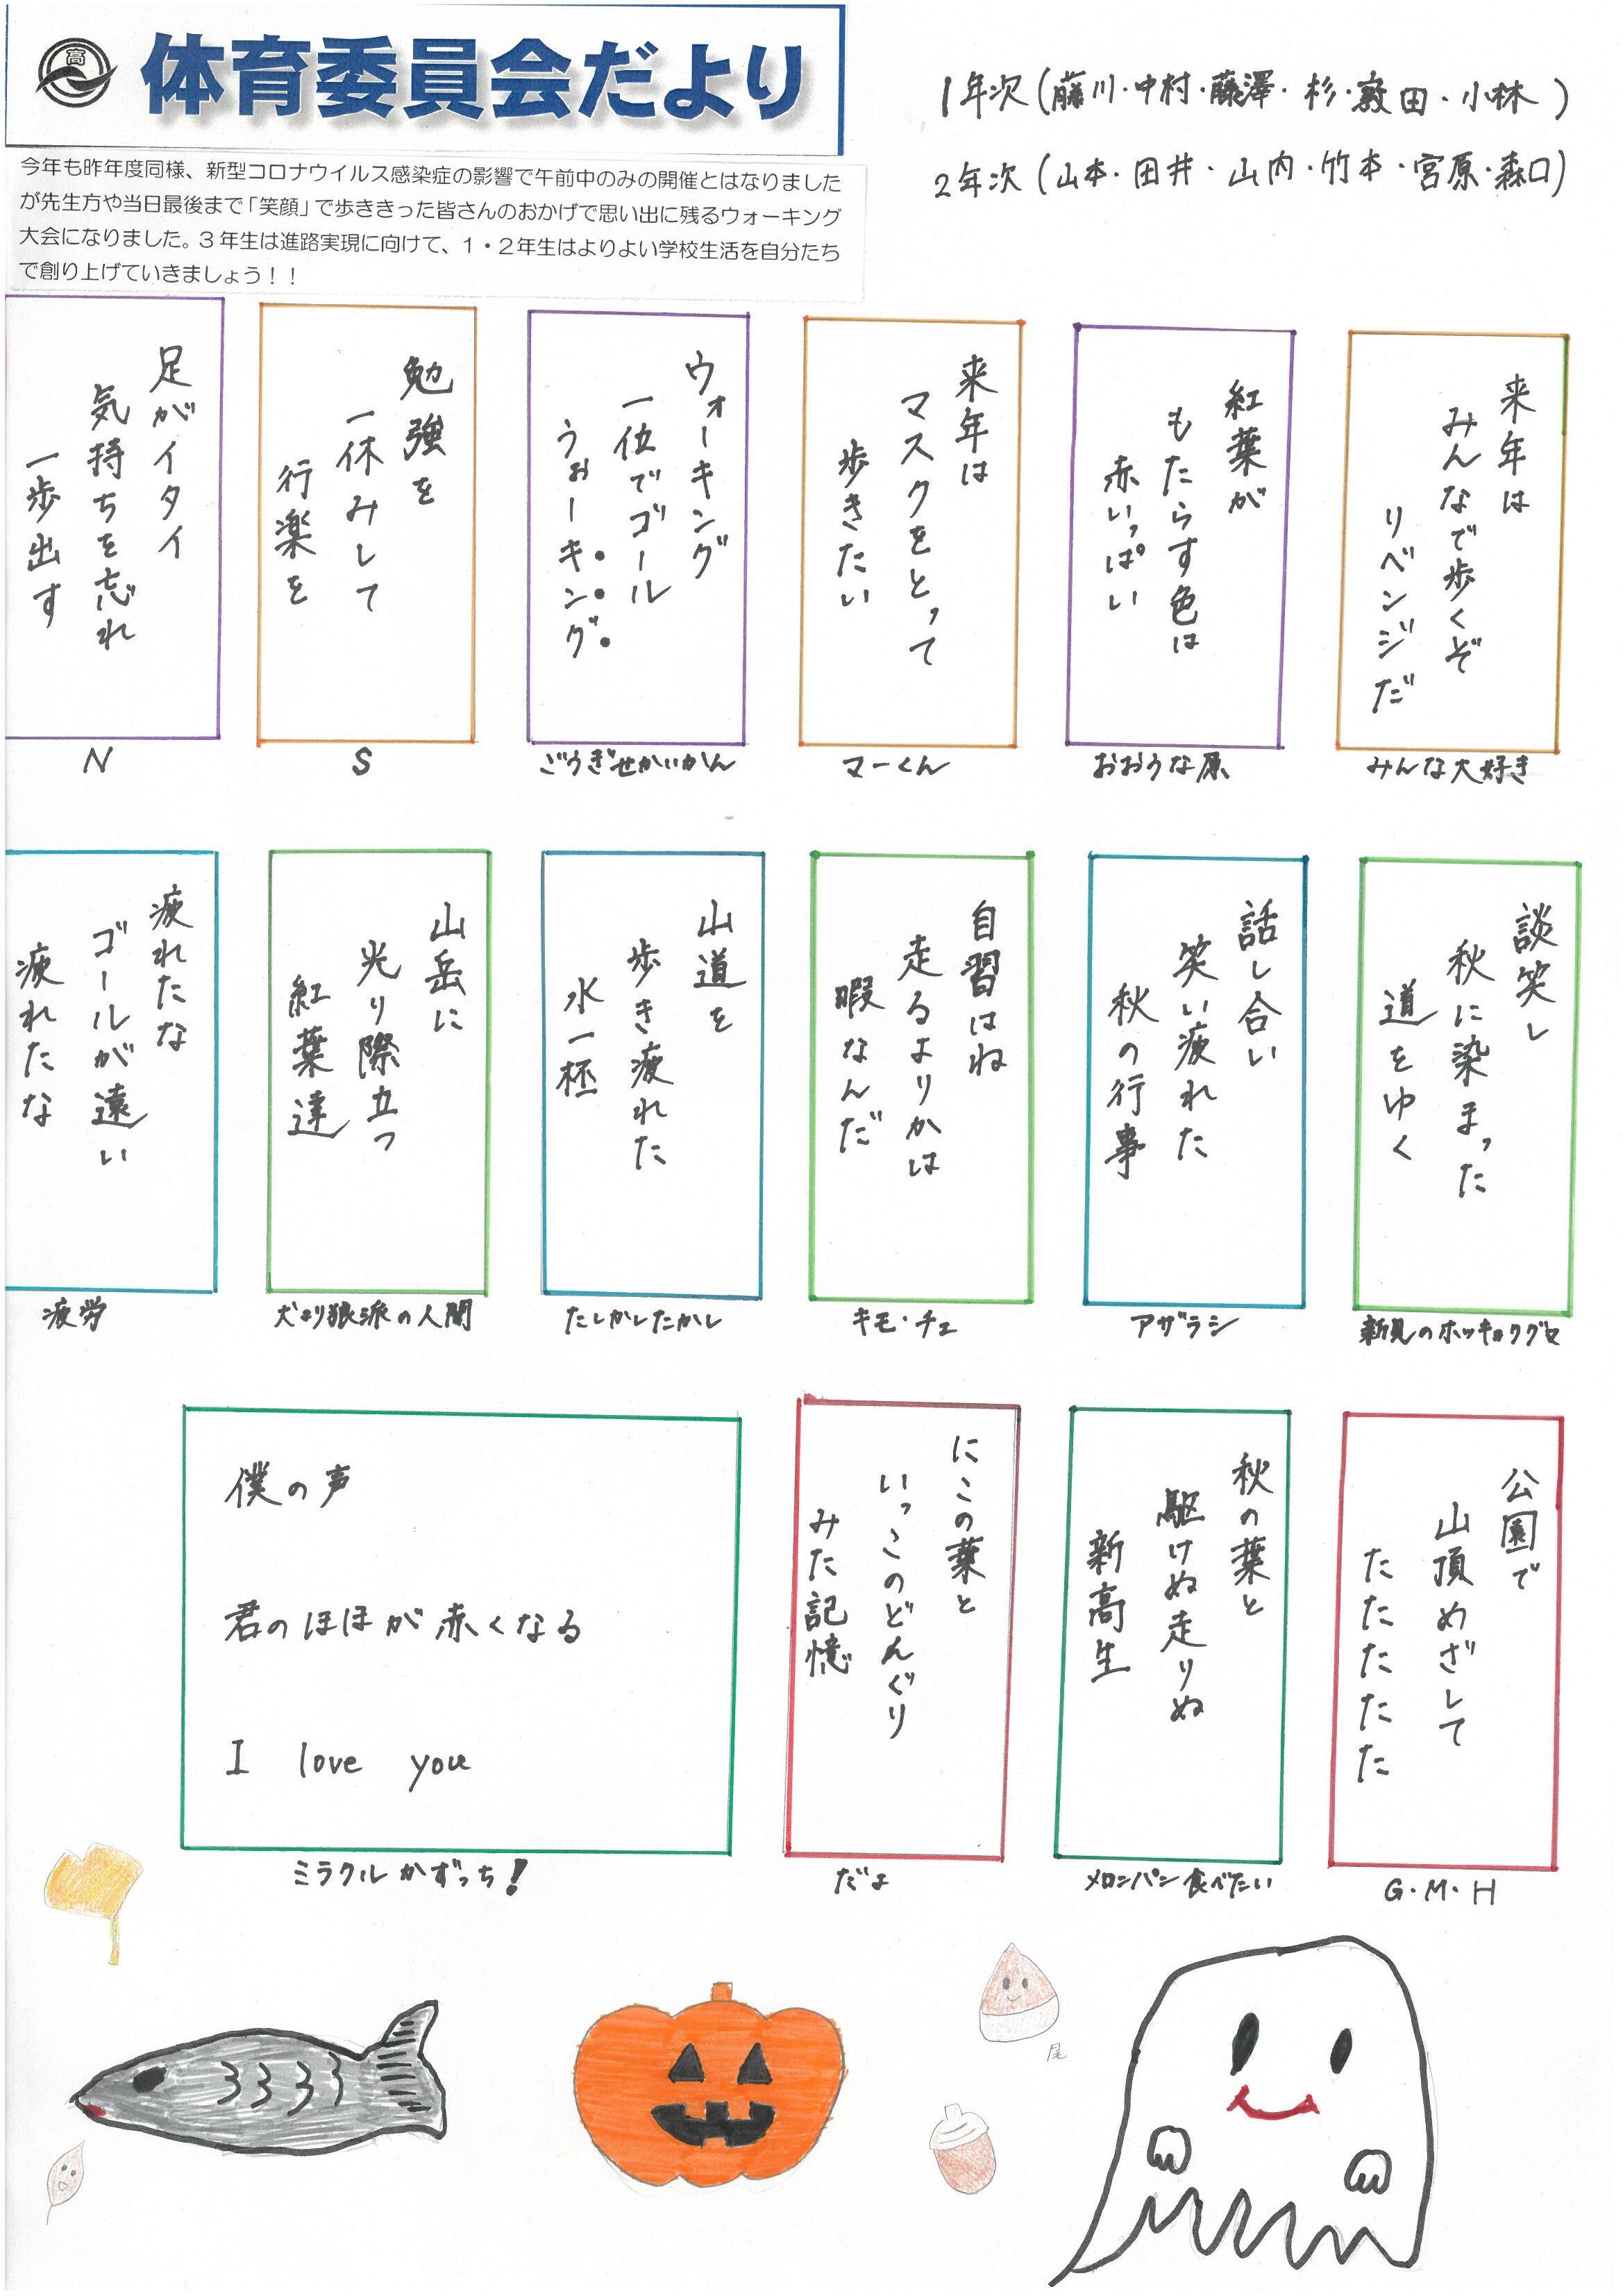 体育委員会だより
高
1年次(藤川・中村・藤澤・杉・敷田・小林)
2年次(山本・田井・山内・竹本・宮原・森口)
今年も昨年度同様、新型コロナウイルス感染症の影響で午前中のみの開催とはなりました
が先生方や当日最後まで「笑顔」で歩ききった皆さんのおかげで思い出に残るウォーキング
大会になりました。3年生は進路実現に向けて、1・2年生はよりよい学校生活を自分たち
で創り上げていきましょう!!
来年は
みんなで歩くぞ
リベンジだ
みんな大好き
紅葉が
もたらす色は
赤いっぱい
おおうな原
来年は
マスクをとって
歩きたい
マーくん
ウォーキング
一位でゴール
うぉーキング
ごうぎせかいかん
勉強を
一休みして
行楽を
S
足がイタイ
気持ちを忘れ
一歩出す
N
談笑し
秋に染まった
道をゆく
新見のホッキョクグセ
話し合い
笑い疲れた
秋の行事
アザラシ
自習はね
走るよりかは
暇なんだ
キモ・チェ
山道を
歩き疲れた
水一杯
たしかしたかし
山岳に
光り際立つ
紅葉達
犬より狼派の人間
疲れたな
ゴールが遠い
疲れたな
疲労
公園で
山頂めざして
たたたたた
G・M・H
秋の葉と
駆けぬ走りぬ
新高生
メロンパン食べたい
にこの葉と
いっこのどんぐり
みた記憶
だよ
僕の声
君のほほが赤くなる
I love you
ミラクルかずっち!
尾